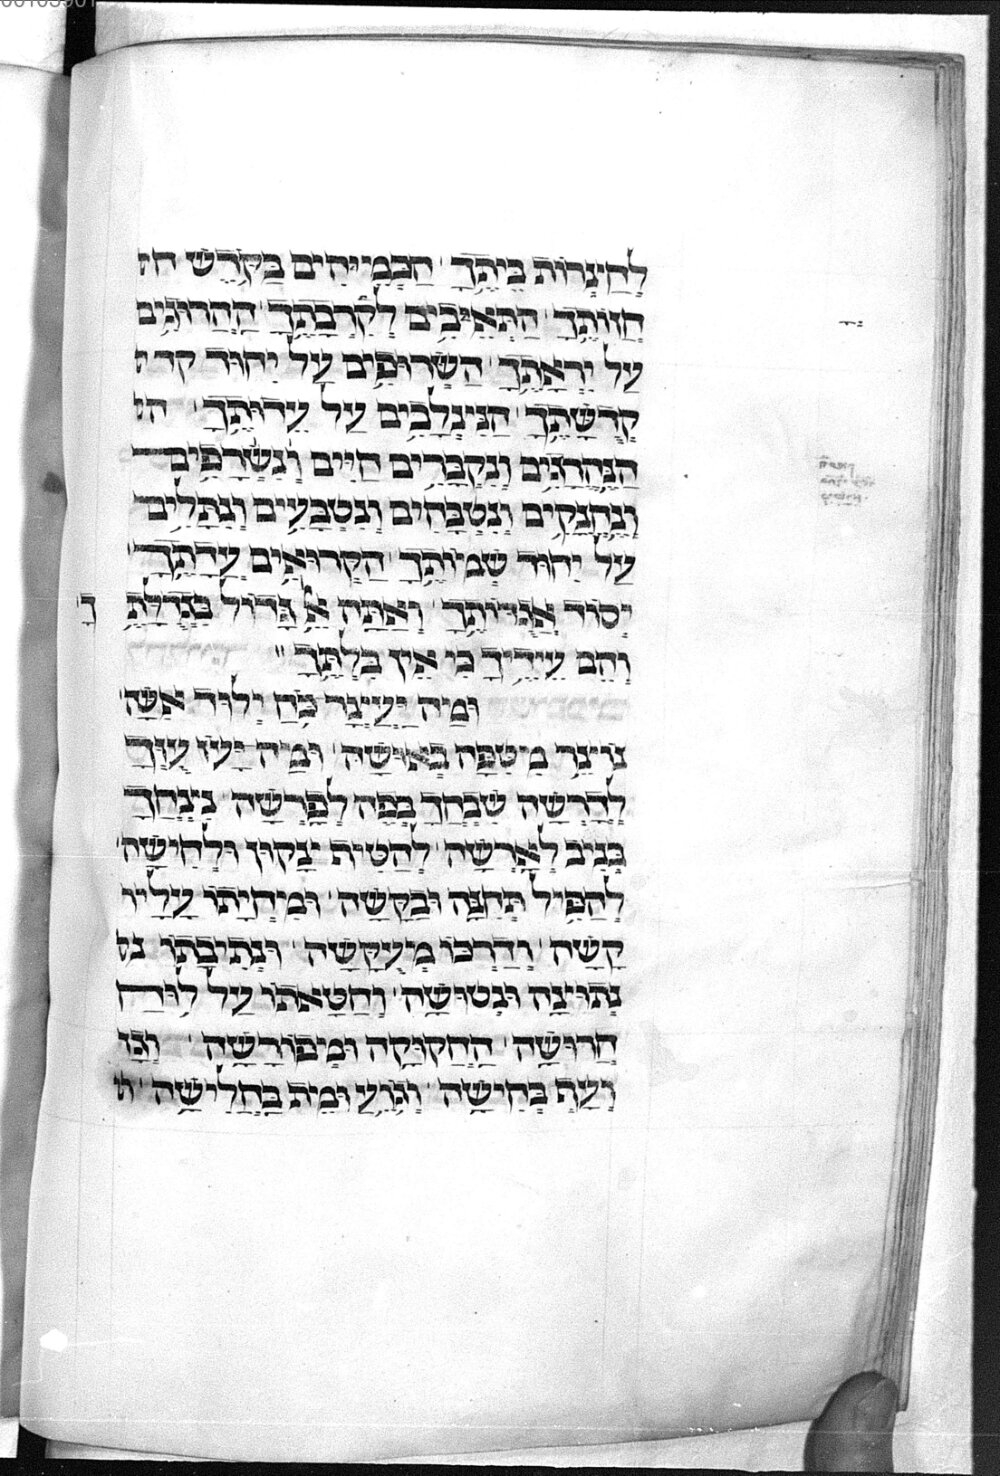 לַחֲנָיוֹת בֵּיתֶךָ הַכְּמֵיהִים בְּקֹדֶשׁ חז
חֲזוֹתֶךָ הַתְּאֵיבִים לְקִרְבָתֶךָ הַהֲרוּגִים
עַל יִרְאָתֶךָ הַשְּׂרוּפִים עַל יִחוּד קד
קְדֻשָּׁתֶךָ הַנִּגְלָבִים עַל עֵדוּתֶךָ הנ
הַנֶּהֱרָגִים וְנִקְבָּרִים חַיִּים וְנִשְׂרָפִים
וְנֶחֱנָקִים וְנִטְבָּחִים וְנִטְבָּעִים וְנִתְלִים
עַל יִחוּד שְׁמוֹתֶךָ הַקְּרוּאִים עֲדָתֶךָ
יְסוֹד אֲגֻדּוֹתֶךָ וְאַתָּה אֵל גָּדוֹל בִּגְדֻלָּתֶךָ
וְהֵם עֵידֶיךָ כִּי אֵין בִּלְתֶּךָ
וּמַה יַּעְצָר כֹּחַ יְלוּד אִשָּׁה
נוֹצָר מִטִּפָּה בְּאוּשָׁה וּמַה יָּעֹז עָזְךָ
לְדָרְשָׁה שִׁבְחֲךָ בְּפֶה לְפָרְשָׁה נִצְחֲךָ
בְּנִיב לְאָרְשָׁה לְהַטּוֹת צָקוּן וּלְחִישָׁה
לְהַפִּיל תְּחִנָּה וּבַקָּשָׁה וּמִחְיָתוֹ עָלָיו
קָשָׁה וְדַרְכּוֹ מְעֻקָּשָׁה וּנְתִיבָתוֹ נת
נְתוּצָה וּנְטוּשָׁה וְחַטָּאתוֹ עַל לוּחַ
חֲרוּשָׁה הַחֲקוּקָה וּמְפוֹרָשָׁה
וְעָף בְּחִישָׁה וְגֹוֵעַ וּמֵת בַּחֲלִישָׁה